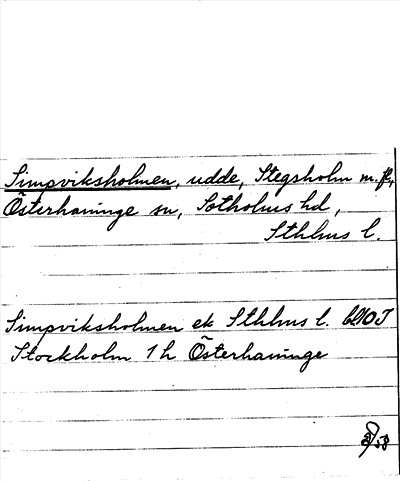 Simpviksholmen, udde, Stegsholm m.fl,
Österhaninge sn, Sotholms hd,
Sthlms l.
Simpviksholmen ek Sthlms l. bl10J
Stockholm 1 h Österhaninge
58